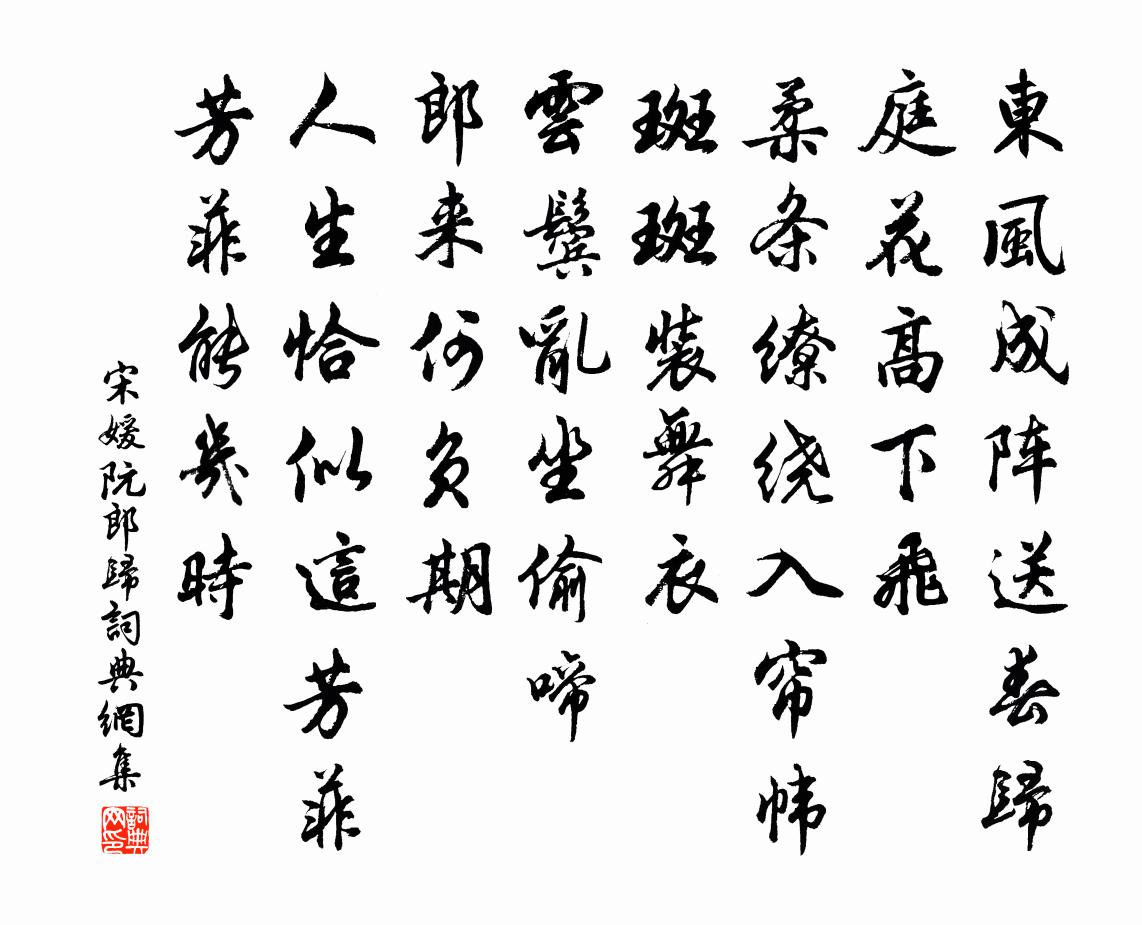 東風成阵送春歸
庭花高下飛
柔条缭绕入帘帏
斑斑装舞衣
雲鬓亂坐偷啼
郎来何负期
人生恰似這芳菲
芳菲能幾時
宋媛阮郎歸詞典網集
詞典网印